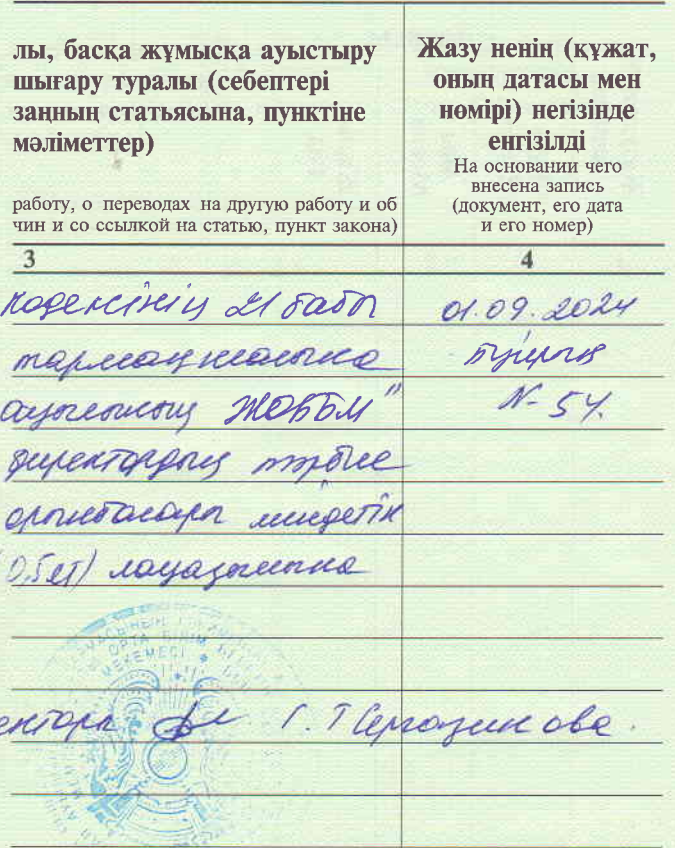 лы, басқа жұмысқа ауыстыру
шығару туралы (себептері
заңның статьясына, пунктіне
мәліметтер)
работу, о переводах на другую работу и об
чин и со ссылкой на статью, пункт закона)
Жазу ненің (құжат,
оның датасы мен
нөмірі) негізінде
енгізілді
На основании чего
внесена запись
(документ, его дата
и его номер)
3
4
кодексінің 21 бабы
01.09.2024
тармақшасына
бұйрық
ауылының ЖОББМ"
№ 54.
директордың тәрбие
орынбасары міндетін
(0,5 ст) лауазымына
ОРТА БІЛІМ
МЕКЕМЕСІ
Г. Т Сергазинова.